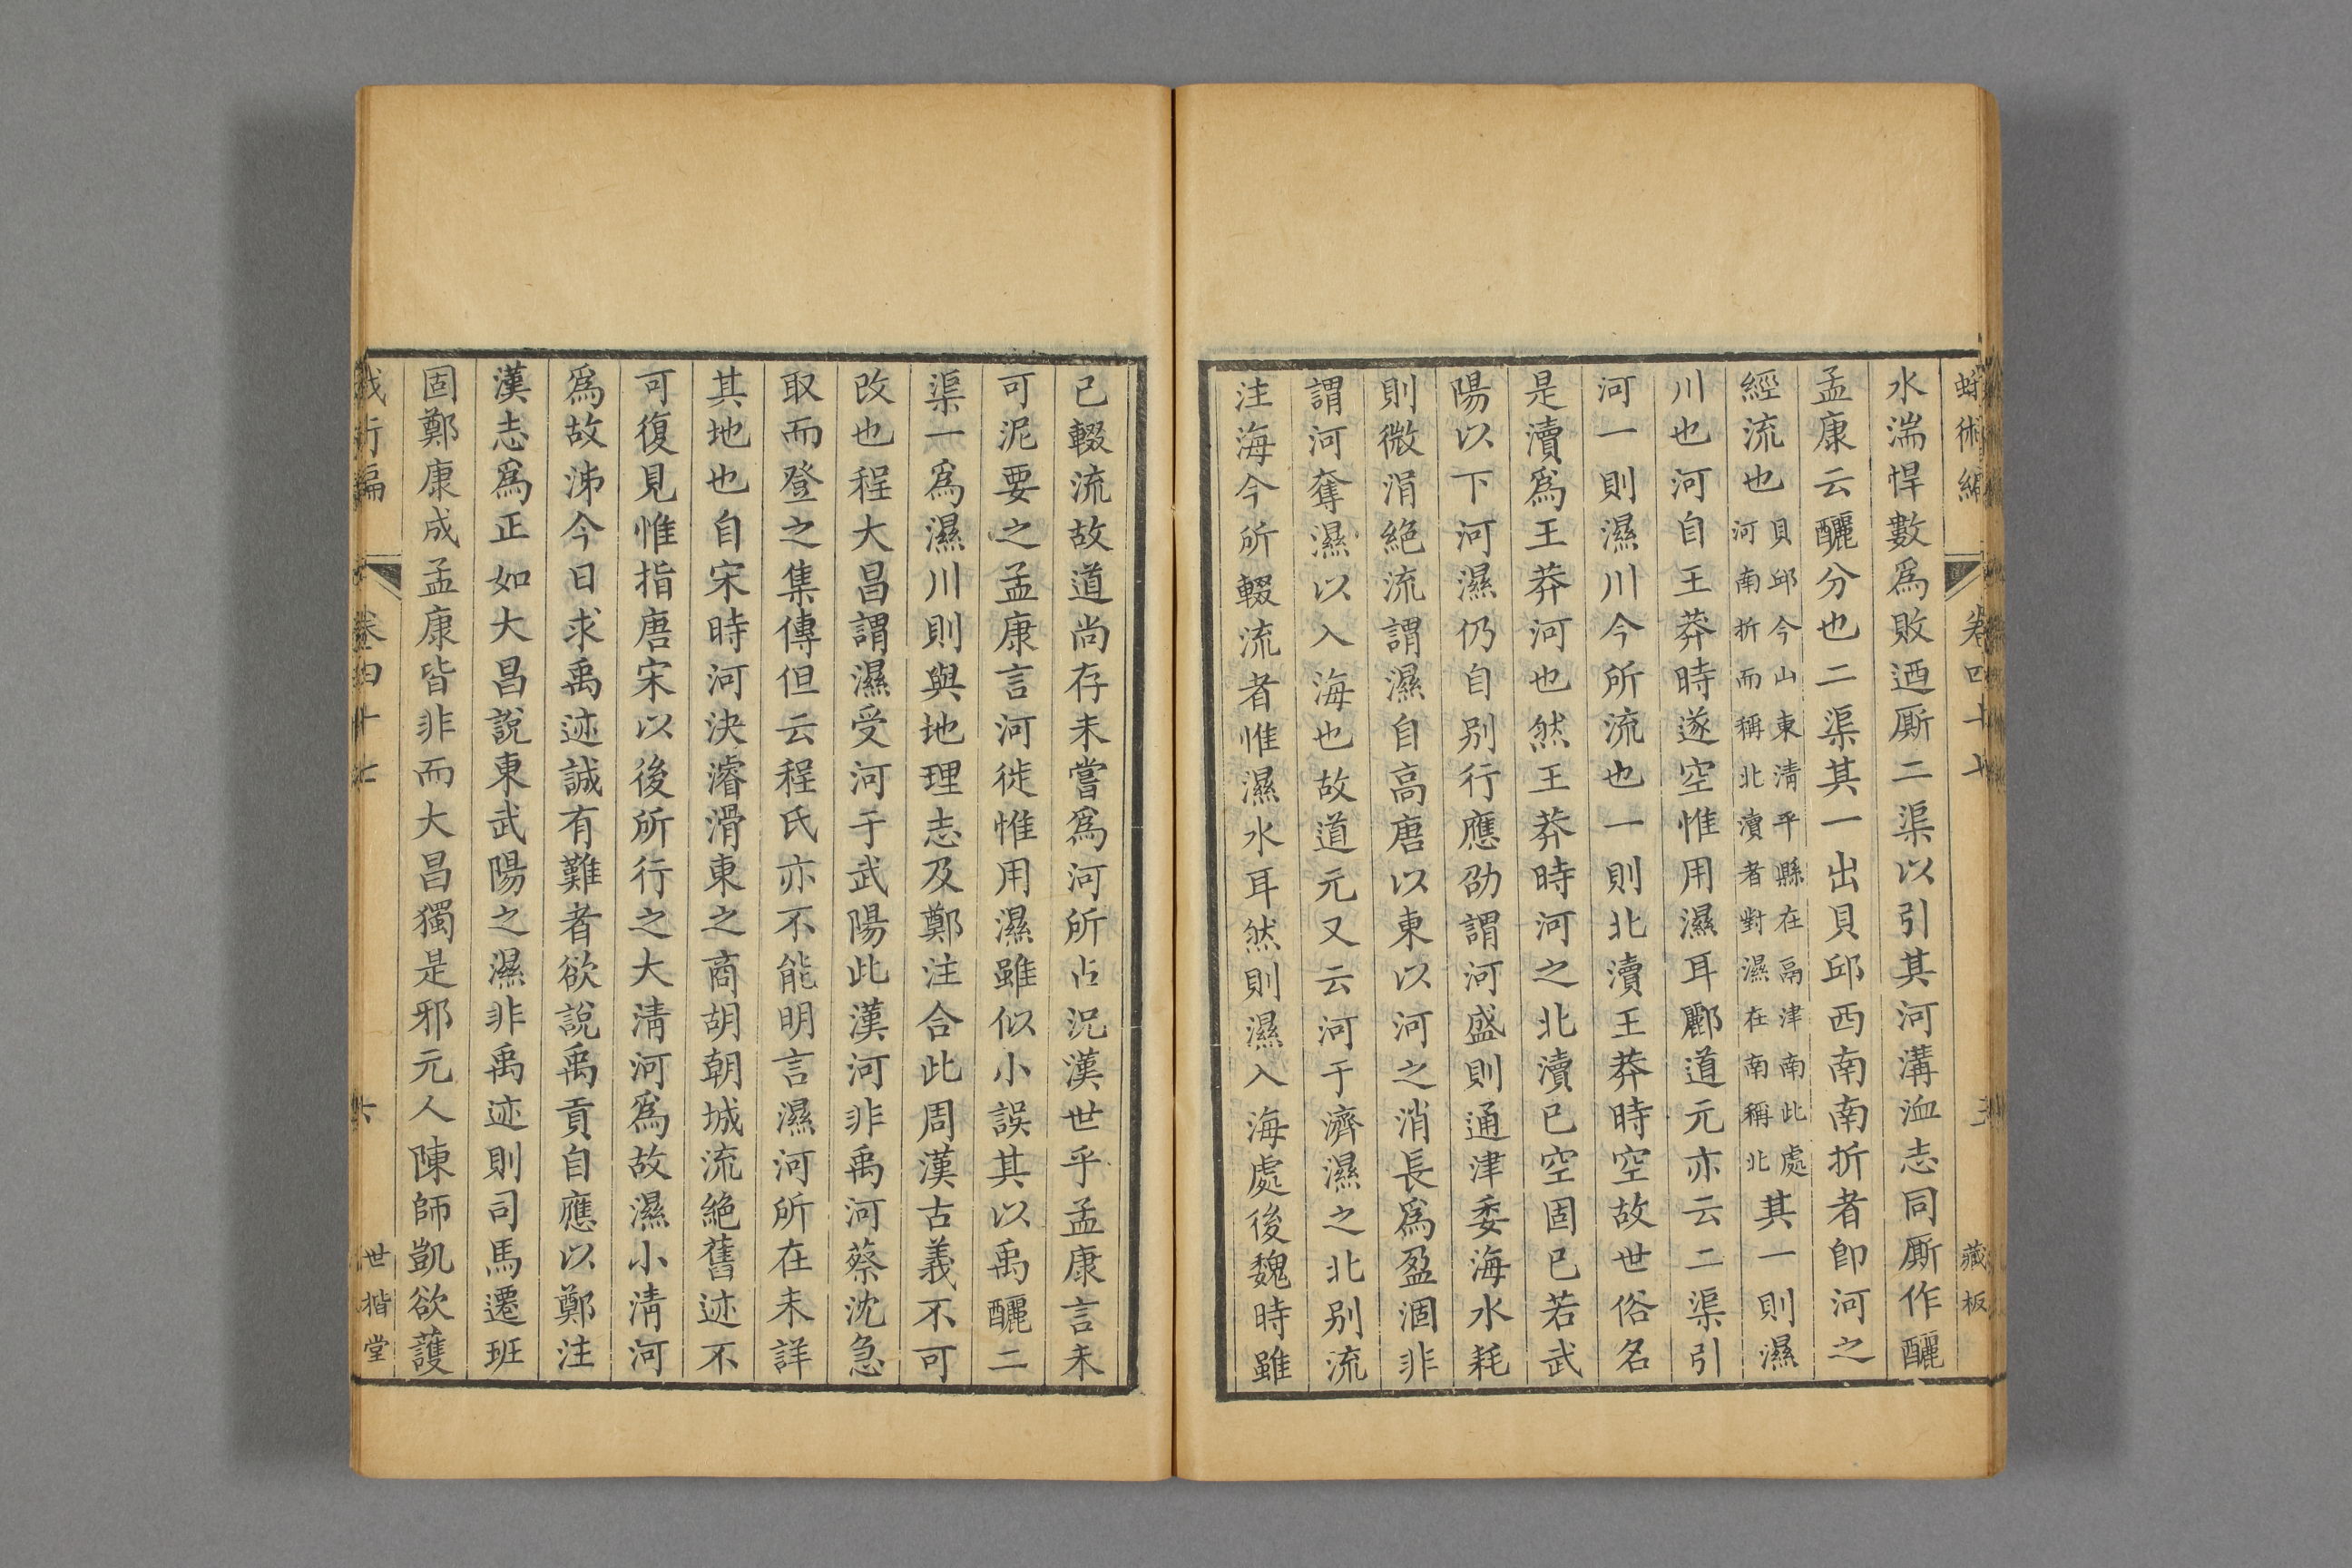 蛾術編
卷四十七
藏板
水湍悍數爲敗迺厮二渠以引其河溝洫志同厮作釃
孟康云釃分也二渠其一出貝邱西南南折者卽河之
經流也貝邱今山東淸平縣在鬲津南此處河南折而稱北瀆者對濕在南稱北其一則濕
川也河自王莽時遂空惟用濕耳酈道元亦云二渠引
河一則濕川今所流也一則北瀆王莽時空故世俗名
是瀆爲王莽河也然王莽時河之北瀆已空固已若武
陽以下河濕仍自别行應劭謂河盛則通津委海水耗
則微涓絶流謂濕自高唐以東以河之消長爲盈涸非
謂河奪濕以入海也故道元又云河于濟濕之北别流
注海今所輟流者惟濕水耳然則濕入海處後魏時雖
已輟流故道尚存未嘗爲河所占況漢世乎孟康言未
可泥要之孟康言河徙惟用濕雖似小誤其以禹釃二
渠一爲濕川則與地理志及鄭注合此周漢古義不可
改也程大昌謂濕受河于武陽此漢河非禹河蔡沈急
取而登之集傳但云程氏亦不能明言濕河所在未詳
其地也自宋時河決濬滑東之商胡朝城流絶舊迹不
可復見惟指唐宋以後所行之大淸河爲故濕小淸河
爲故泲今日求禹迹誠有難者欲說禹貢自應以鄭注
漢志爲正如大昌說東武陽之濕非禹迹則司馬遷班
固鄭康成孟康皆非而大昌獨是邪元人陳師凱欲護
卷四十七
六
世楷堂